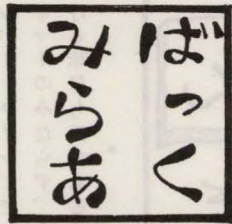 ばっく
みらあ